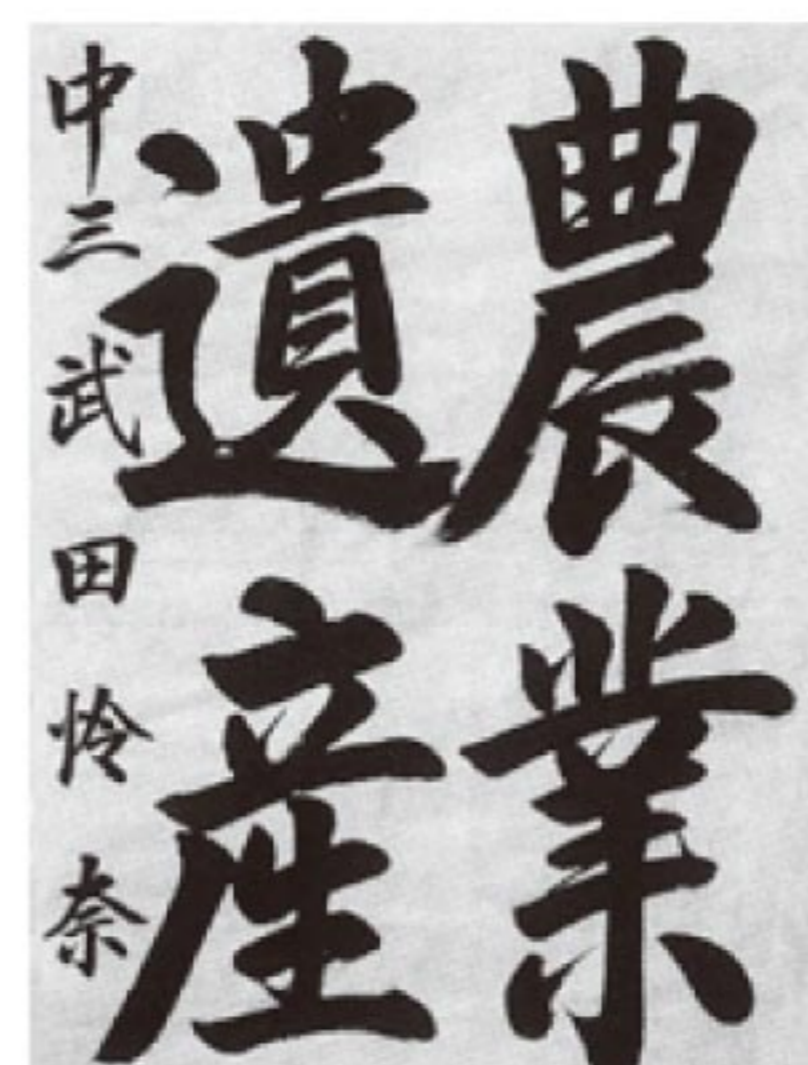 農業
遺産
中三武田怜奈